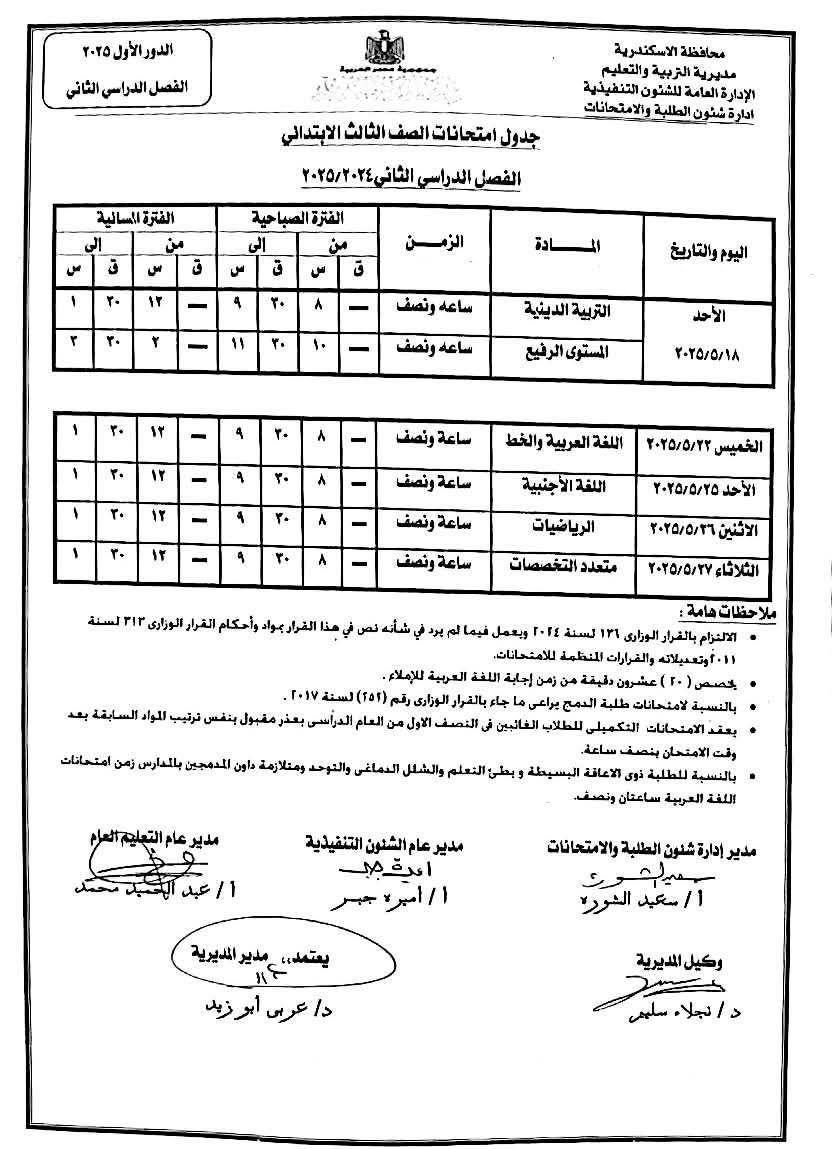 محافظة الاسكندرية
مديرية التربية والتعليم
الإدارة العامة للشئون التنفيذية
ادارة شئون الطلبة والامتحانات
جمهورية مصر العربية
الدور الأول ٢٠٢٥
الفصل الدراسي الثاني
جدول امتحانات الصف الثالث الابتدائي
الفصل الدراسي الثاني ٢٠٢٥/٢٠٢٤
اليوم والتاريخ المــــادة الزمــن الفترة الصباحية الفترة المسائية
من إلى من إلى
ق س ق س ق س ق س
الأحد ٢٠٢٥/٥/١٨ التربية الدينية ساعه ونصف — ٨ ٣٠ ٩ — ١٢ ٣٠ ١
المستوى الرفيع ساعه ونصف — ١٠ ٣٠ ١١ — ٢ ٣٠ ٣
الخميس ٢٠٢٥/٥/٢٢ اللغة العربية والخط ساعة ونصف — ٨ ٣٠ ٩ — ١٢ ٣٠ ١
الأحد ٢٠٢٥/٥/٢٥ اللغة الأجنبية ساعة ونصف — ٨ ٣٠ ٩ — ١٢ ٣٠ ١
الاثنين ٢٠٢٥/٥/٢٦ الرياضيات ساعة ونصف — ٨ ٣٠ ٩ — ١٢ ٣٠ ١
الثلاثاء ٢٠٢٥/٥/٢٧ متعدد التخصصات ساعة ونصف — ٨ ٣٠ ٩ — ١٢ ٣٠ ١
ملاحظات هامة :
• الالتزام بالقرار الوزارى ١٣٦ لسنة ٢٠٢٤ ويعمل فيما لم يرد في شأنه نص في هذا القرار بمواد وأحكام القرار الوزارى ٣١٣ لسنة
٢٠١١ وتعديلاته والقرارات المنظمة للامتحانات.
• يخصص ( ٢٠ ) عشرون دقيقة من زمن إجابة اللغة العربية للإملاء .
• بالنسبة لامتحانات طلبة الدمج يراعى ما جاء بالقرار الوزارى رقم (٢٥٢) لسنة ٢٠١٧ .
• يعقد الامتحانات التكميلى للطلاب الغائبين فى النصف الاول من العام الدراسى بعذر مقبول بنفس ترتيب المواد السابقة بعد
وقت الامتحان بنصف ساعة.
• بالنسبة للطلبة ذوى الاعاقة البسيطة و بطئ التعلم والشلل الدماغى والتوحد ومتلازمة داون المدمجين بالمدارس زمن امتحانات
اللغة العربية ساعتان ونصف.
مدير إدارة شئون الطلبة والامتحانات مدير عام الشئون التنفيذية مدير عام التعليم العام
أ/ سعيد الشوره أ/ أميره جبر أ/ عبد الحميد محمد
وكيل المديرية يعتمد،، مدير المديرية
د/ نجلاء سليم د/ عربى أبو زيد